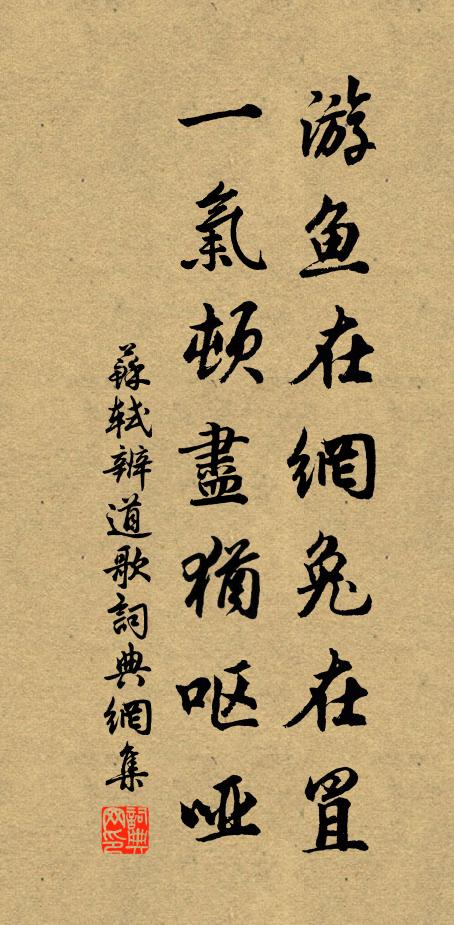 游鱼在網兔在罝
一氣頓盡猶呕哑
蘇轼辨道歌詞典網集
詞典网印